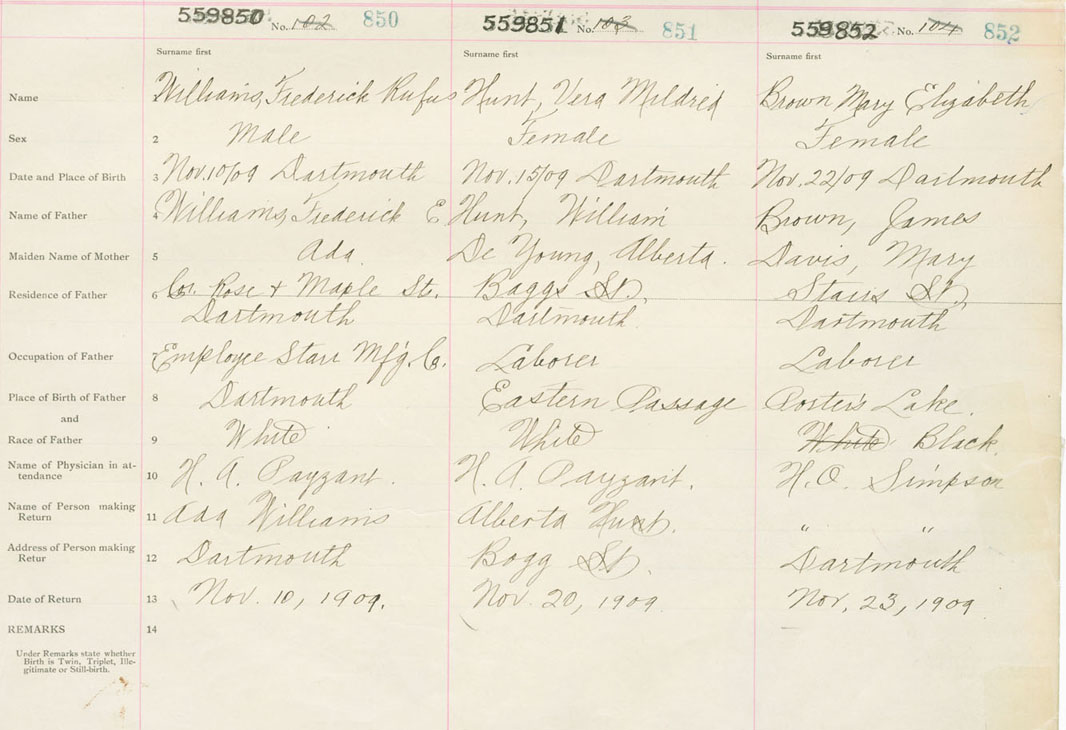 559850 No. 102 850 559851 No. 103 851 559852 No. 104 852
Surname first Surname first Surname first
Name Williams, Frederick Rufus Hunt, Vera Mildred Brown Mary Elizabeth
Sex 2 Male Female Female
Date and Place of Birth 3 Nov. 10/09 Dartmouth Nov. 15/09 Dartmouth Nov. 22/09 Dartmouth
Name of Father 4 Williams, Frederick E Hunt, William Brown, James
Maiden Name of Mother 5 Ada. De Young, Alberta. Davis, Mary
Residence of Father 6 Cor. Rose + Maple St. Baggs St., Stairs St.,
Dartmouth Dartmouth. Dartmouth
Occupation of Father 7 Employee Starr Mf'g. Co. Laborer Laborer
Place of Birth of Father 8 Dartmouth Eastern Passage Porter's Lake.
and
Race of Father 9 White White White Black.
Name of Physician in at-
tendance 10 H. A. Payzant. H. A. Payzant. H. O. Simpson
Name of Person making
Return 11 Ada Williams Alberta Hunt. " "
Address of Person making
Retur 12 Dartmouth Bogg St. Dartmouth
Date of Return 13 Nov. 10, 1909. Nov. 20, 1909. Nov, 23, 1909
REMARKS 14
Under Remarks state whether
Birth is Twin, Triplet, Ille-
gitimate or Still-birth.